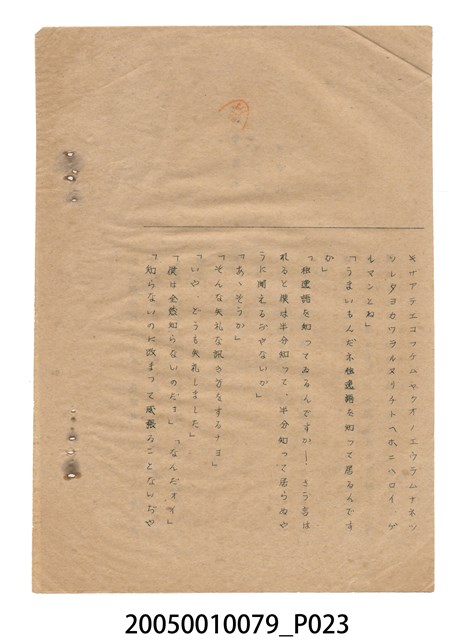 キサアテエコフケムヤクオノエウラムナネツ
ソレタヨカワヲルヌリチトヘホニハロイ デ
ルマンとね」
「うまいもんだネ独逸語を知つて居るんです
か」
「独逸語を知つてゐるんですかー さう言は
れると僕は半分知つて、半分知つて居らぬや
うに聞えるぢやないか」
「あゝそうか」
「そんな失礼な訊き方をするナヨ」
「いや、どうも失礼しました」
「僕は全然知らないのだヨ」「なんだオイ」
「知らないのに改まつて威張ることないぢや
20050010079_P023